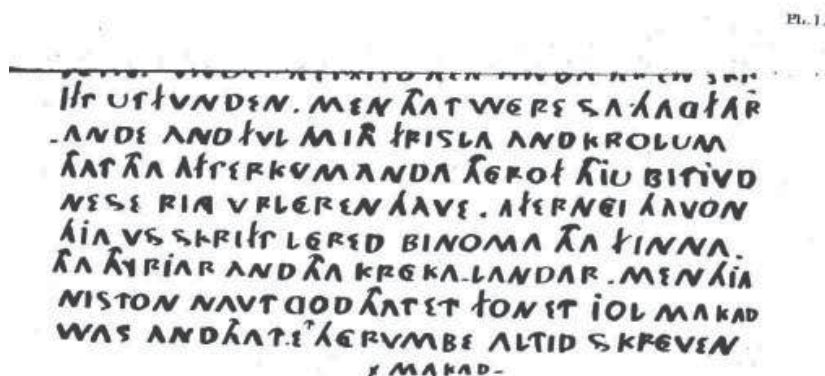 IFT UTFVNDEN. MEN THAT WERE SA HAGFAR
ANDE AND FVL MITH FRISLA AND KROLUM
THAT THA AFTERKVMANDA THEROF THIU BITIVD
NESE RING VRLEREN HAVE. AFTERNEI HAVON
HIA VS SKRIFT LERED BINOMA THA FINNA.
THA THYRIAR AND THA KREKA-LANDAR. MEN HIA
NISTON NAVT GOD THAT ET FON ET IOL MAKAD
WAS AND THAT.ET THERVMBE ALTID SKREVEN
MAKAD-
Pl. I.